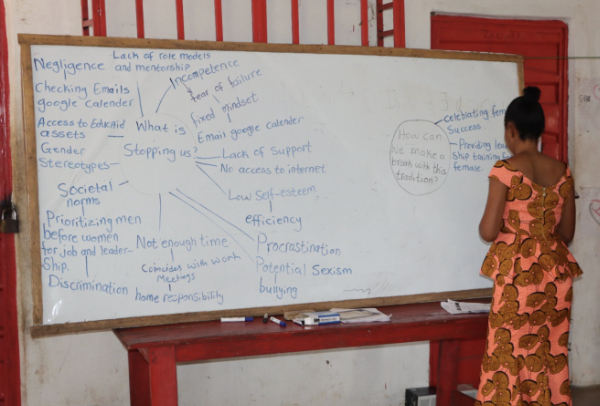 Lack of role models
and mentorship
Negligence
Incompetence
fear of failure
fixed mindset
Email google calender
Checking Emails
google Calender
Access to
assets
Gender
Stereotypes
What is
Stopping us?
Lack of Support
No access to internet
Low self-esteem
efficiency
Societal
norms
Prioritizing men
before women
for job and leader-
ship.
Discrimination
Not enough time
Coincides with work
Meetings
home responsibility
Procrastination
Potential Sexism
bullying
How can
we make a
break with this
tradition?
celebrating
Success
Providing
Ship training
female.